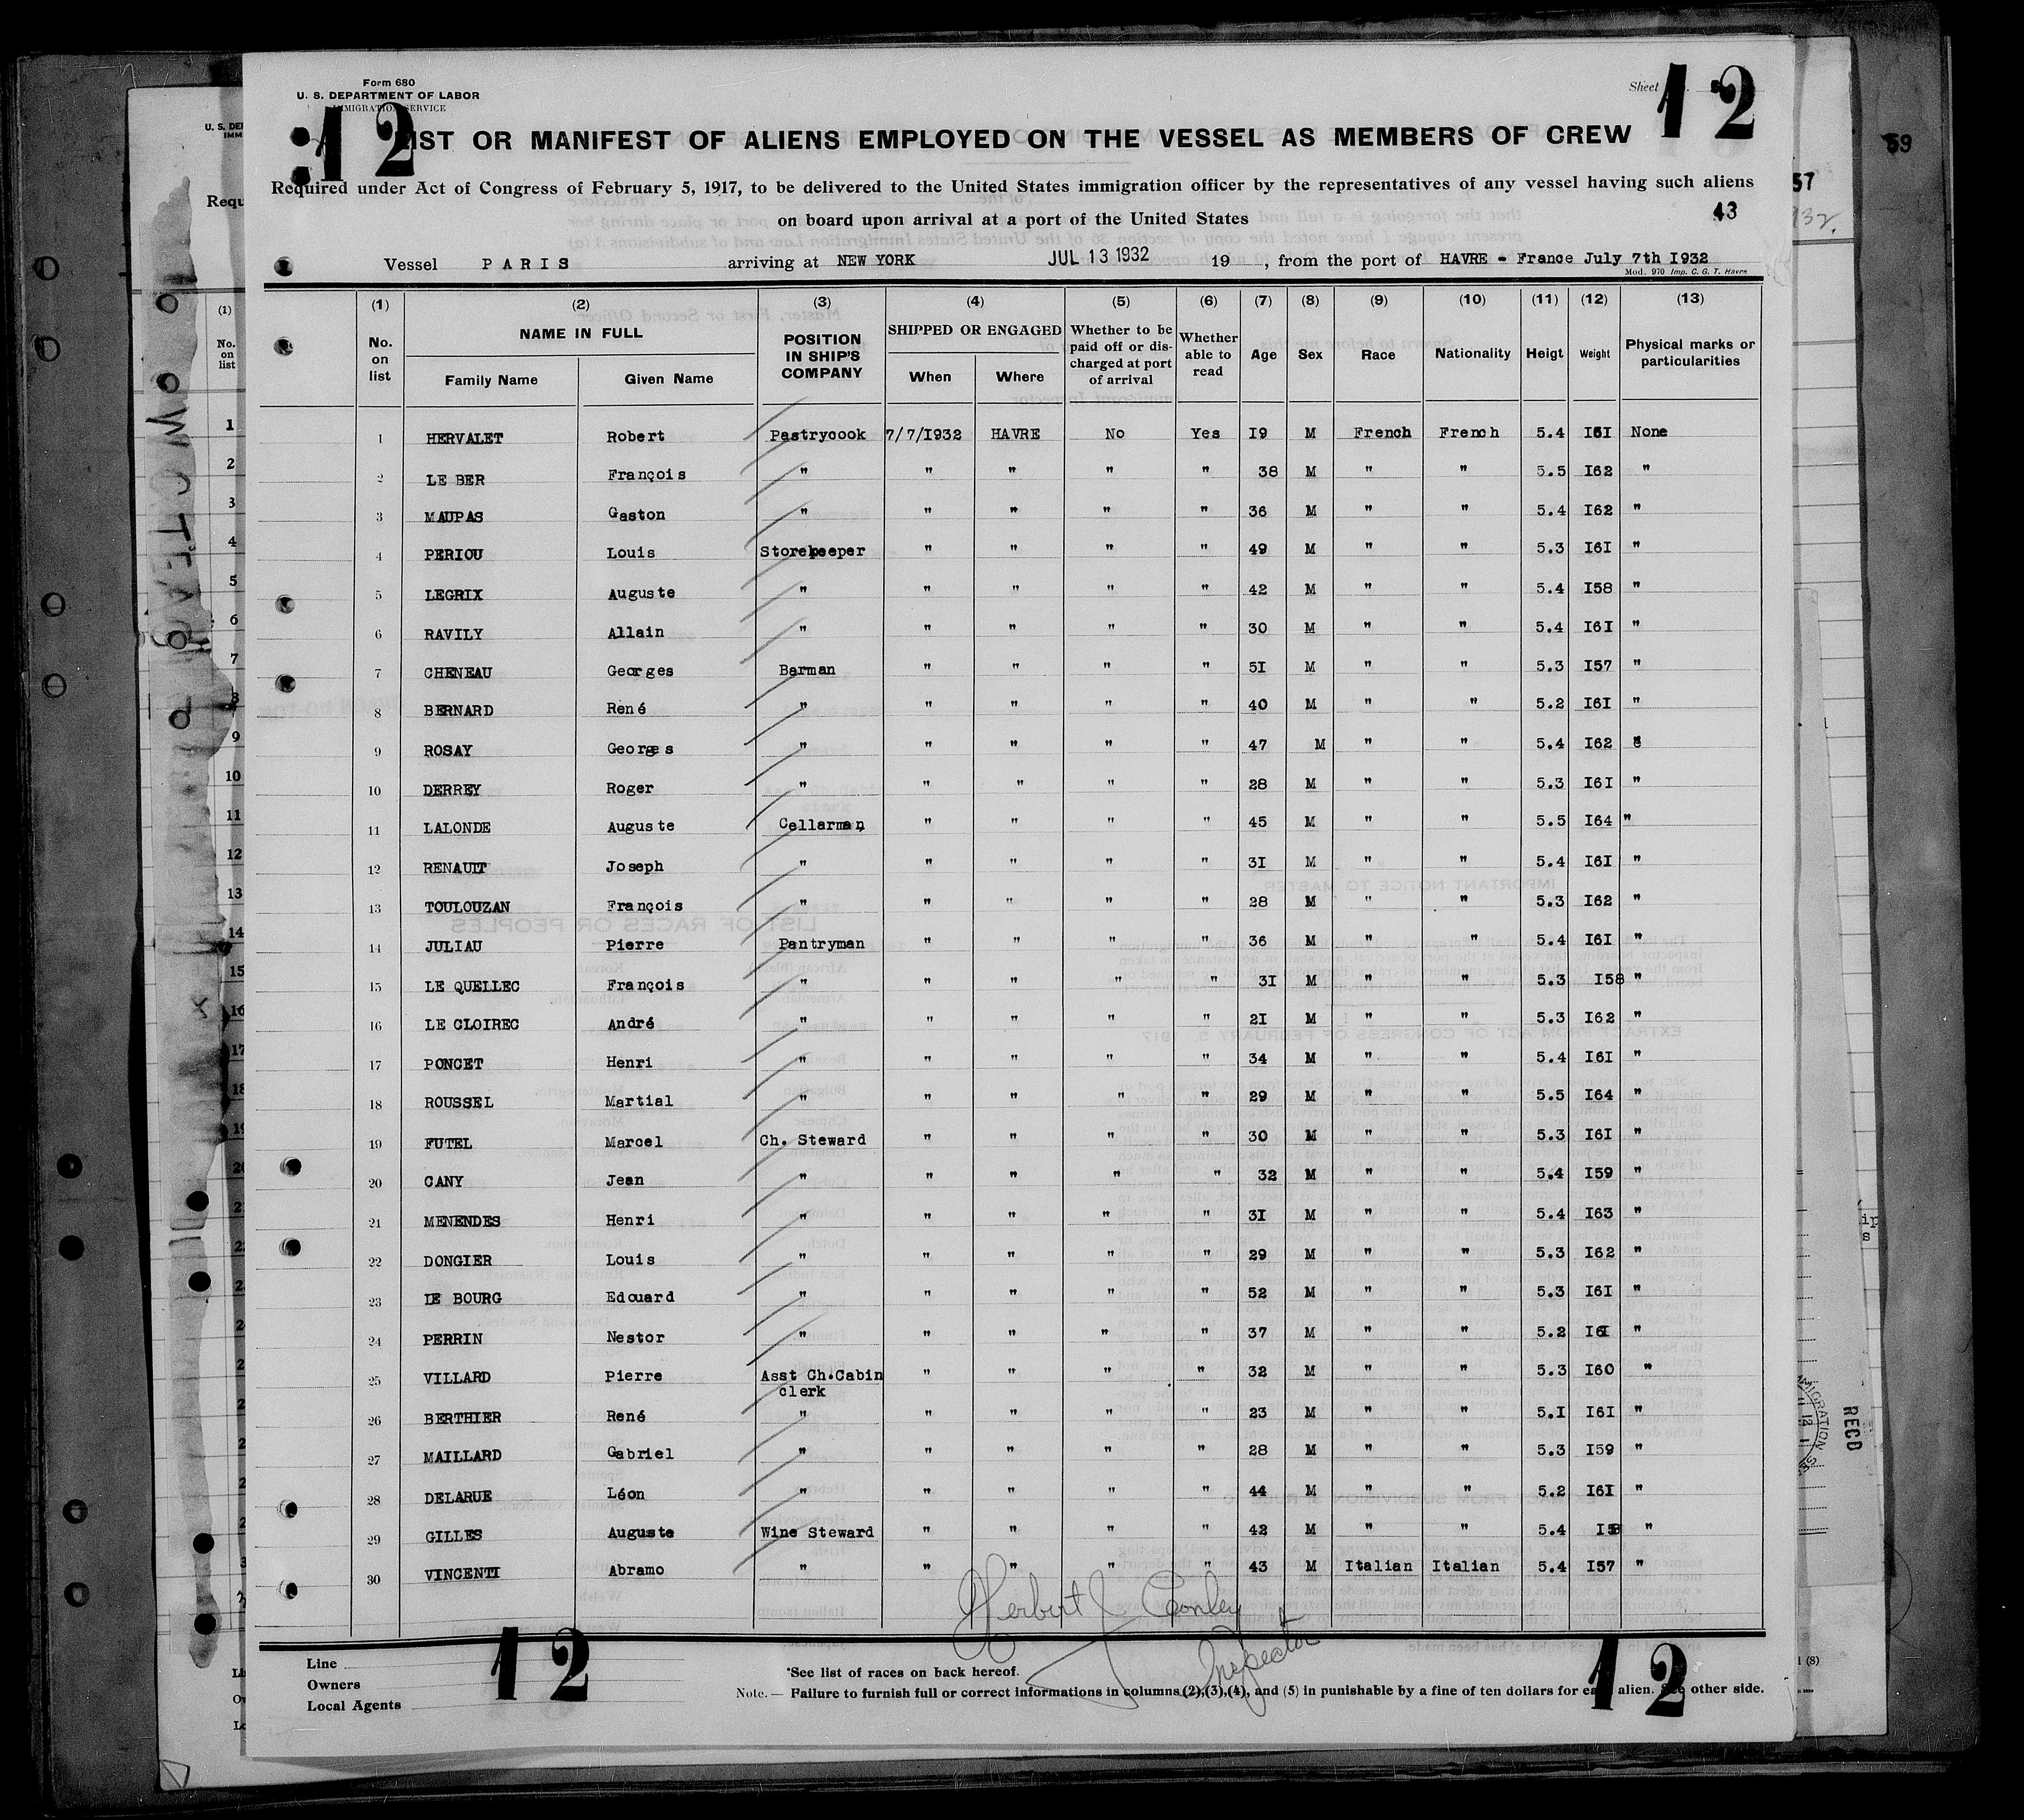 Form 680
U. S. DEPARTMENT OF LABOR
IMMIGRATION SERVICE
Sheet
12
12
LIST OR MANIFEST OF ALIENS EMPLOYED ON THE VESSEL AS MEMBERS OF CREW
Required under Act of Congress of February 5, 1917, to be delivered to the United States immigration officer by the representatives of any vessel having such aliens
on board upon arrival at a port of the United States
43
Vessel PARIS arriving at NEW YORK JUL 13 1932 19 , from the port of HAVRE - France July 7th I932
Mod. 970 Imp. C. G. T. Havre
(1) (2) (3) (4) (5) (6) (7) (8) (9) (10) (11) (12) (13)
No. on list NAME IN FULL Family Name Given Name POSITION IN SHIP'S COMPANY SHIPPED OR ENGAGED When Where Whether to be paid off or discharged at port of arrival Whether able to read Age Sex Race Nationality Heigt Weight Physical marks or particularities
1 HERVALET Robert Pastrycook 7/7/I932 HAVRE No Yes I9 M French French 5.4 I6I None
2 LE BER François " " " " " 38 M " " 5.5 I62 "
3 MAUPAS Gaston " " " " " 36 M " " 5.4 I62 "
4 PERIOU Louis Storekeeper " " " " 49 M " " 5.3 I6I "
5 LEGRIX Auguste " " " " " 42 M " " 5.4 I58 "
6 RAVILY Allain " " " " " 30 M " " 5.4 I6I "
7 CHENEAU Georges Barman " " " " 5I M " " 5.3 I57 "
8 BERNARD René " " " " " 40 M " " 5.2 I6I "
9 ROSAY Georges " " " " " 47 M " " 5.4 I62 "
10 DERREY Roger " " " " " 28 M " " 5.3 I6I "
11 LALONDE Auguste Cellarman " " " " 45 M " " 5.5 I64 "
12 RENAULT Joseph " " " " " 3I M " " 5.4 I6I "
13 TOULOUZAN François " " " " " 28 M " " 5.3 I62 "
14 JULIAU Pierre Pantryman " " " " 36 M " " 5.4 I6I "
15 LE QUELLEC François " " " " " 3I M " " 5.3 I58 "
16 LE CLOIREC André " " " " " 2I M " " 5.3 I62 "
17 PONCET Henri " " " " " 34 M " " 5.4 I6I "
18 ROUSSEL Martial " " " " " 29 M " " 5.5 I64 "
19 FUTEL Marcel Ch. Steward " " " " 30 M " " 5.3 I6I "
20 CANY Jean " " " " " 32 M " " 5.4 I59 "
21 MENENDES Henri " " " " " 3I M " " 5.4 I63 "
22 DONGIER Louis " " " " " 29 M " " 5.3 I62 "
23 LE BOURG Edouard " " " " " 52 M " " 5.3 I6I "
24 PERRIN Nestor " " " " " 37 M " " 5.2 I6I "
25 VILLARD Pierre Asst Ch.Cabin clerk " " " " 32 M " " 5.3 I60 "
26 BERTHIER René " " " " " 23 M " " 5.I I6I "
27 MAILLARD Gabriel " " " " " 28 M " " 5.3 I59 "
28 DELARUE Léon " " " " " 44 M " " 5.2 I6I "
29 GILLES Auguste Wine Steward " " " " 42 M " " 5.4 "
30 VINCENTI Abramo " " " " " 43 M Italian Italian 5.4 I57 "
Herbert J. Conley
Inspector
Line
Owners
Local Agents
12
*See list of races on back hereof.
Note. — Failure to furnish full or correct informations in columns (2),(3),(4), and (5) in punishable by a fine of ten dollars for each alien. See other side.
12
59
57
RECD